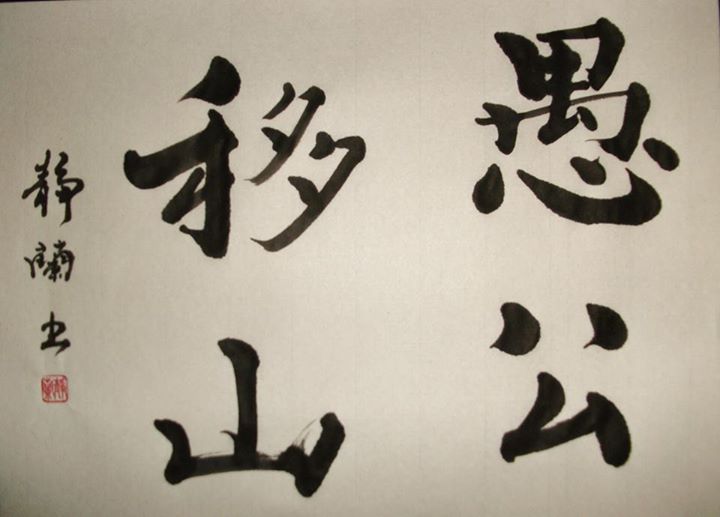 愚公
移山
静蘭书